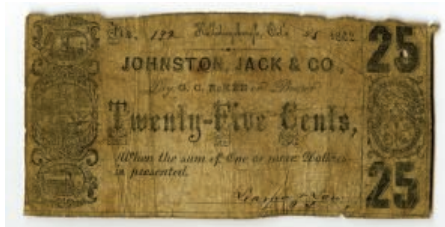 No. 122 Oct. 25 1862
25
JOHNSTON, JACK & CO.,
Pay G. C. BAKER or Bearer
Twenty-Five Cents,
When the sum of One or more Dollars
is presented.
25